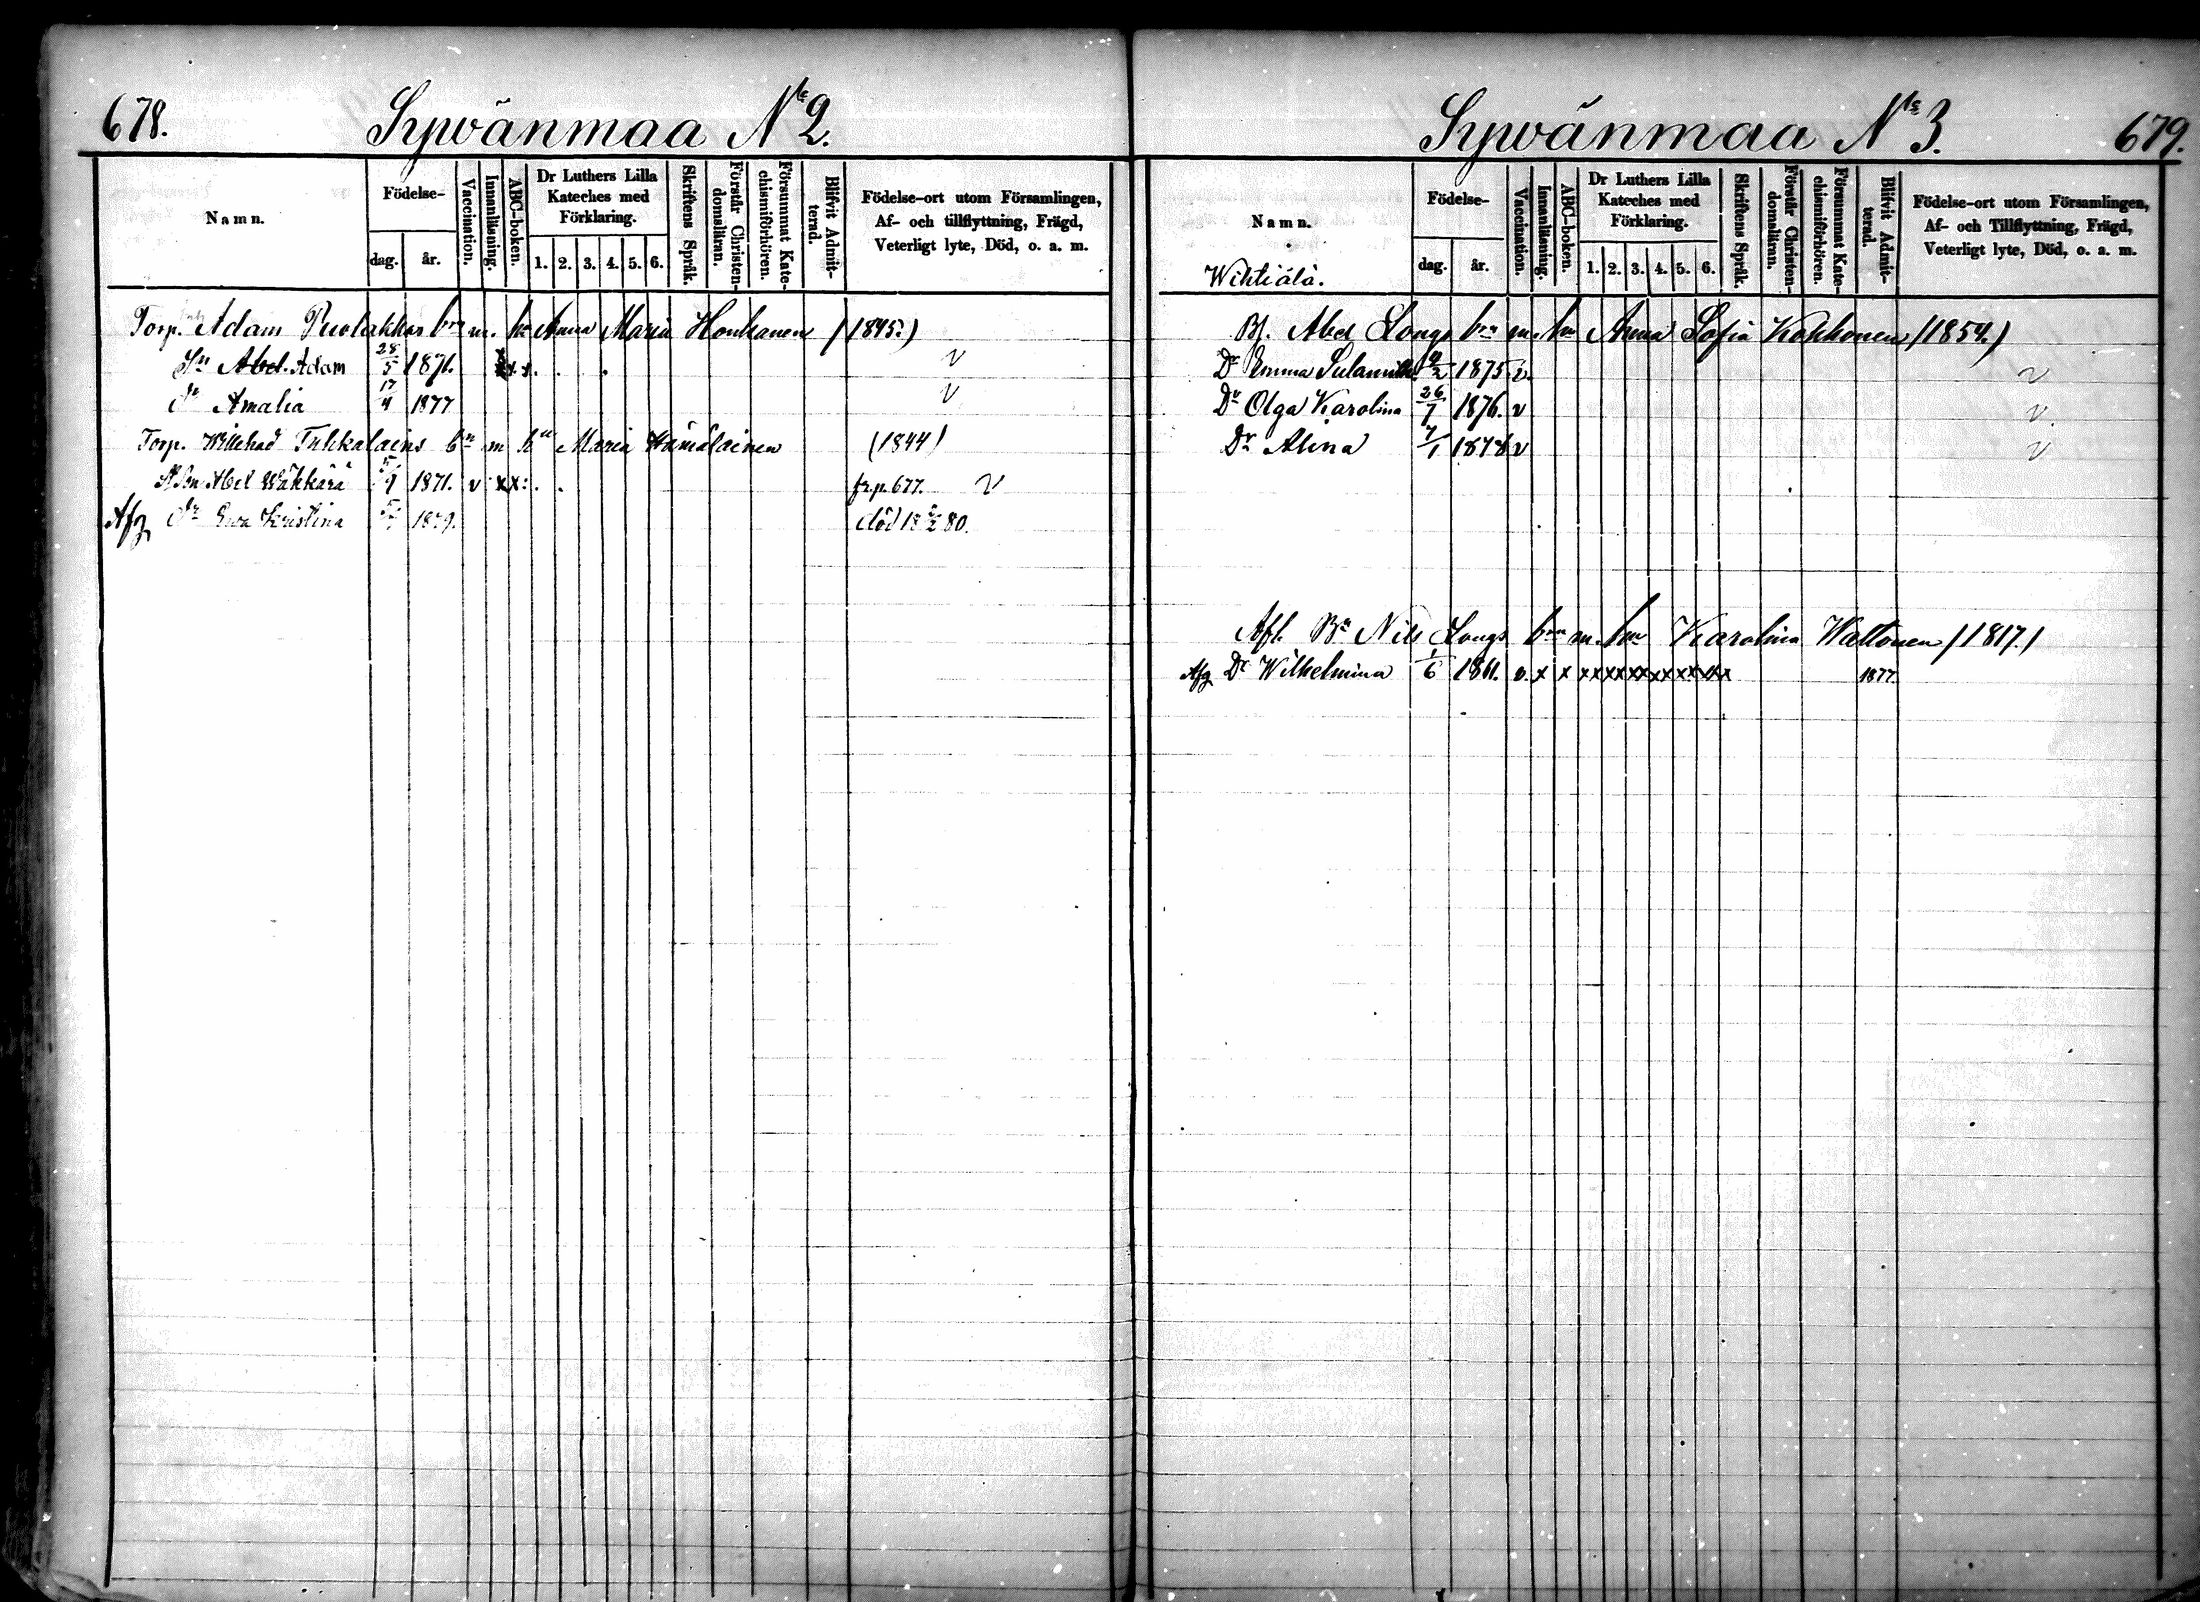 678.
Sywänmaa Nº 2.
Namn.
Födelse-
dag.
år.
Vaccination.
Innanläsning.
ABC-boken.
Dr Luthers Lilla
Kateches med
Förklaring.
1. 2. 3. 4. 5. 6.
Skriftens Språk.
Förstår Christen-
domsläran.
Försummat Kate-
chismiförhören.
Blifvit Admit-
terad.
Födelse-ort utom Församlingen,
Af- och tillflyttning, Frägd,
Veterligt lyte, Död, o. a. m.
Torp. Adam m. Anna Maria Honkanen (1845.)
Sn Abel Adam 28/5 1871. x x . . . v
Dr Amalia 17/4 1877 v
Torp. Willehad Tukkalains bn m hu Maria Hämäläinen (1844)
Abel Wäkkärä 1871. v x x : . . fr. p. 677. v
Afg Dr Ewa Kristina 1879. död 18 80.
679.
Sywänmaa Nº 3.
Namn.
Wihtiälä.
Födelse-
dag.
år.
Vaccination.
Innanläsning.
ABC-boken.
Dr Luthers Lilla
Kateches med
Förklaring.
1. 2. 3. 4. 5. 6.
Skriftens Språk.
Förstår Christen-
domsläran.
Försummat Kate-
chismiförhören.
Blifvit Admit-
terad.
Födelse-ort utom Församlingen,
Af- och Tillflyttning, Frägd,
Veterligt lyte, Död, o. a. m.
Abel Longs bns m. hu Anna Sofia Kokkonen (1854.)
Dr Emma 1875. v. v
Dr Olga Karolina 26/7 1876. v v.
Dr Alina 7/1 1878 v v
Afl. Bn Nils Longs bns m. hu Karolina Wattonen (1817.)
Afg Dr Wilhelmina 1/6 1861. v. x x x x x x x x x x x x x x x 1877.